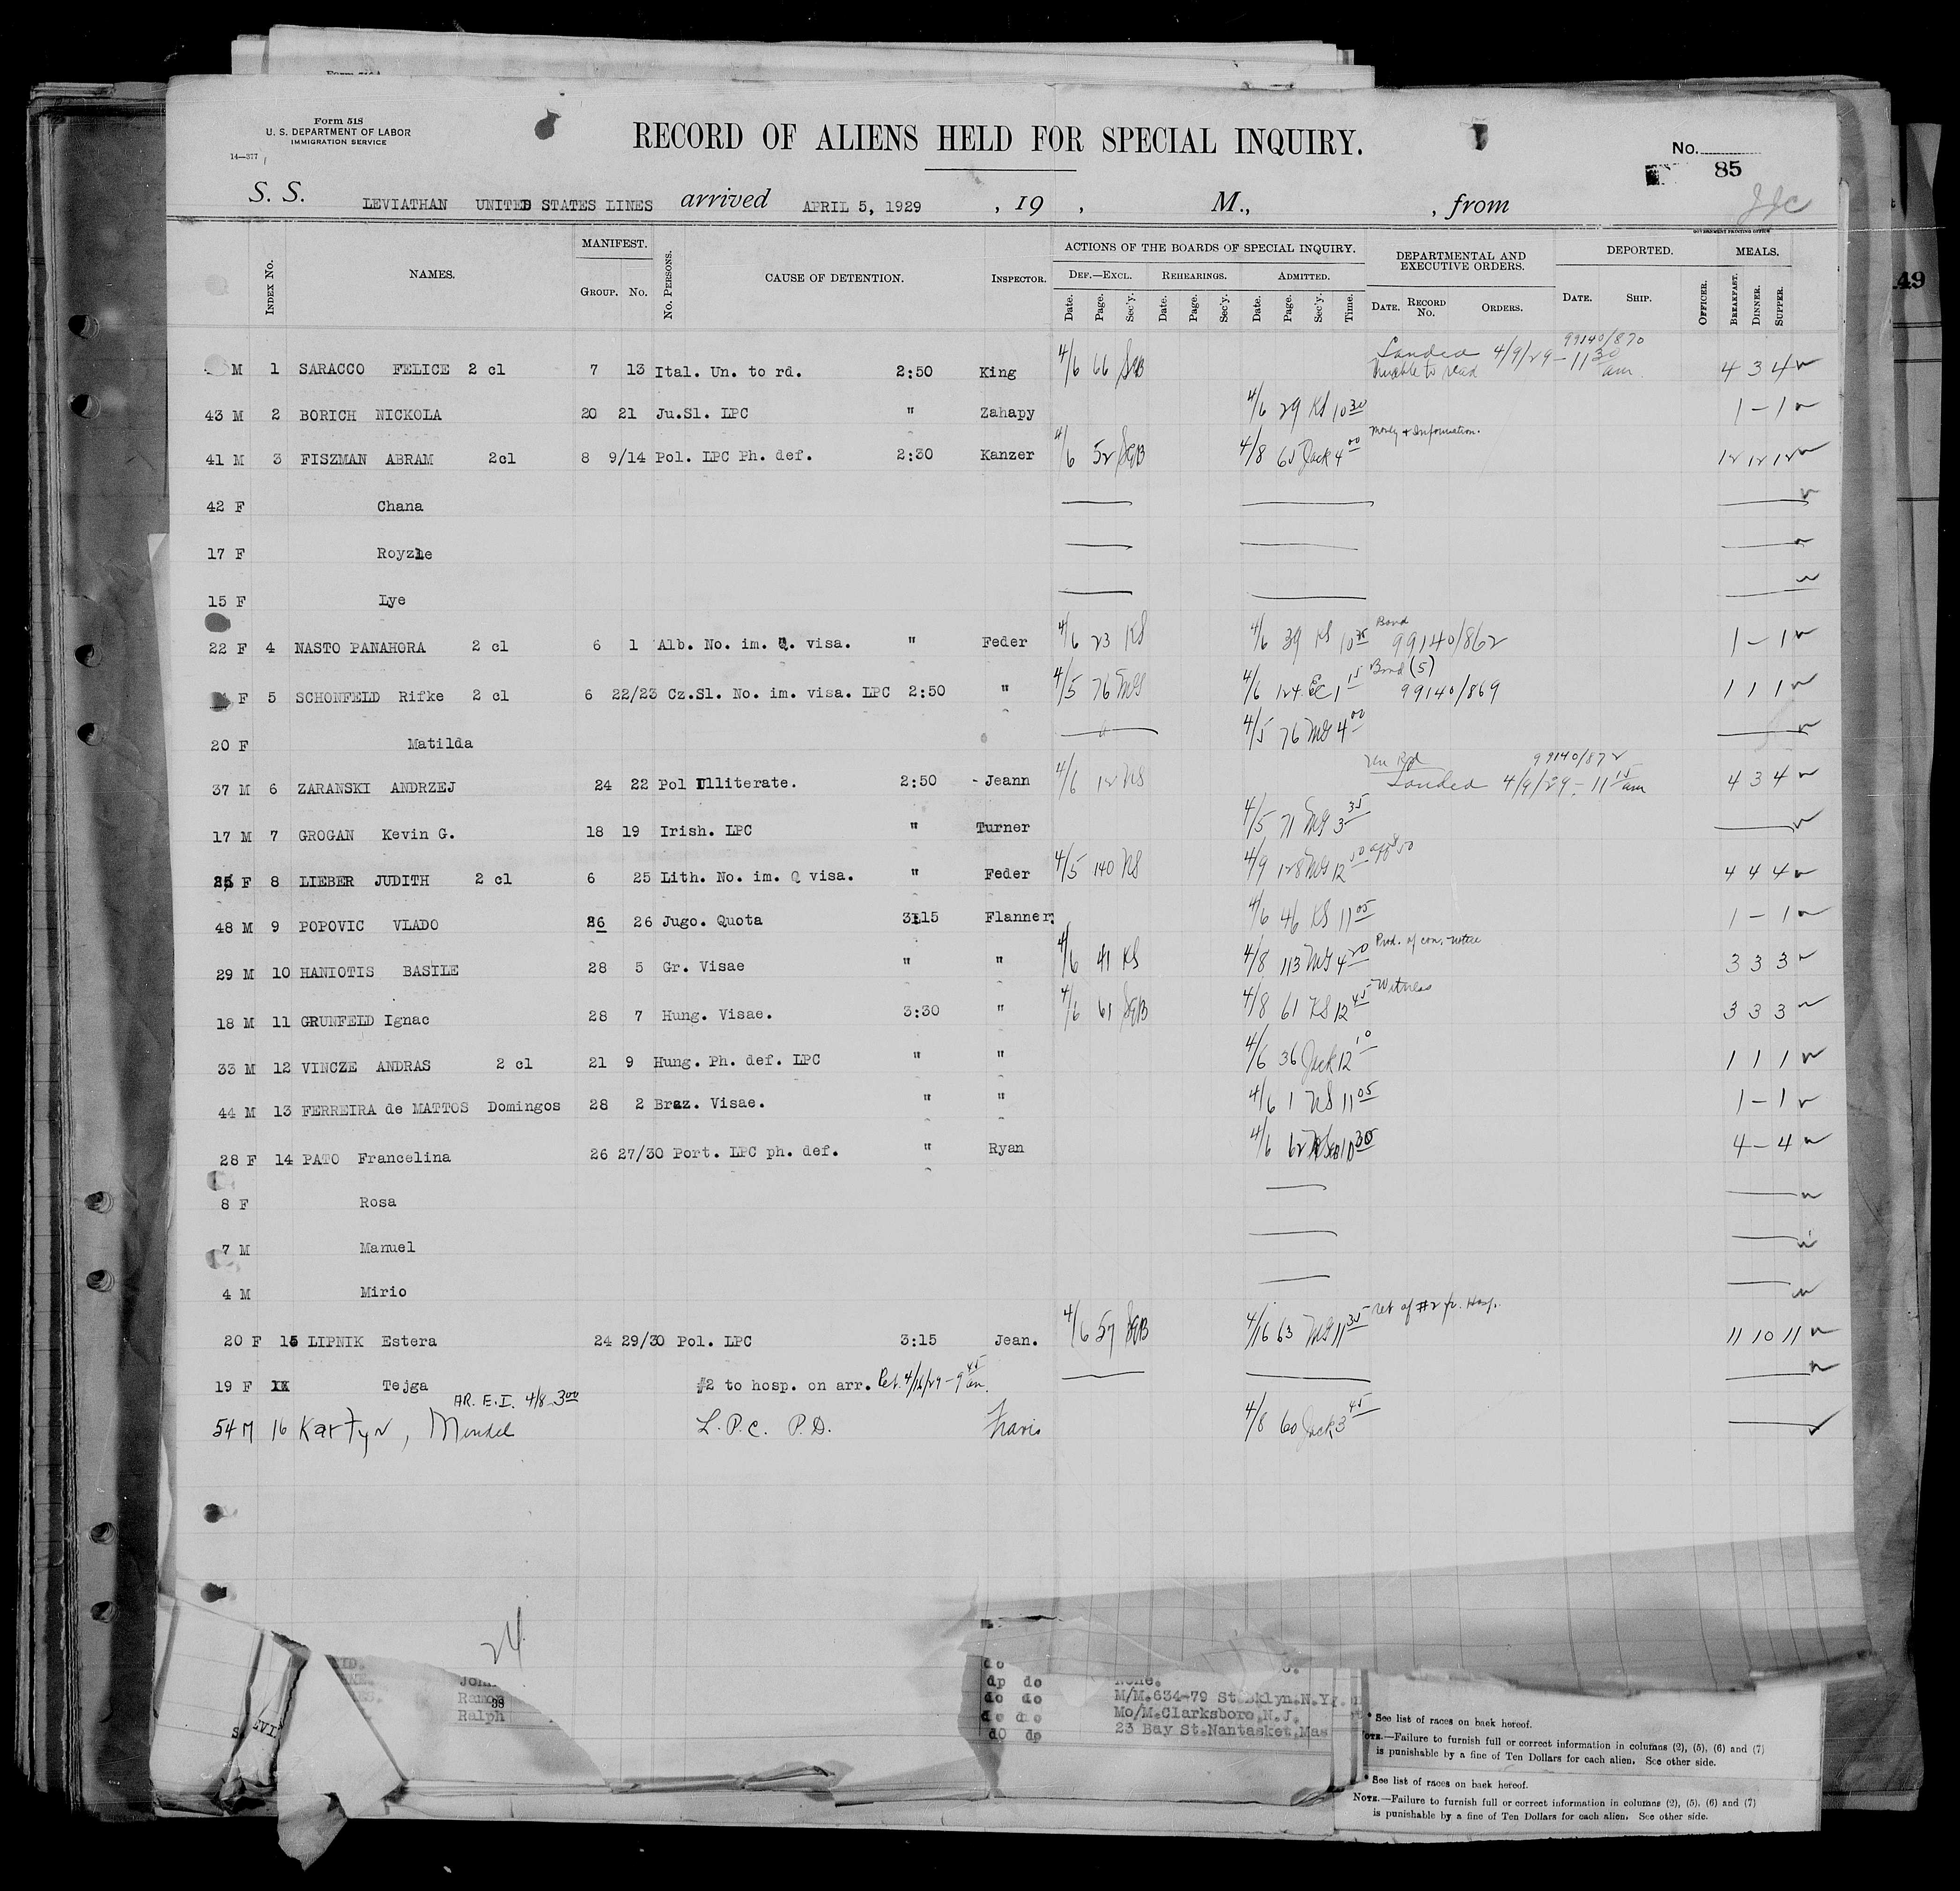 Form 518
U. S. DEPARTMENT OF LABOR
IMMIGRATION SERVICE
14—377
RECORD OF ALIENS HELD FOR SPECIAL INQUIRY.
No.
85
S. S. LEVIATHAN UNITED STATES LINES arrived APRIL 5, 1929 , 19 , M., , from
GOVERNMENT PRINTING OFFICE
Index No. NAMES. MANIFEST. GROUP. No. No. PERSONS. CAUSE OF DETENTION. INSPECTOR. ACTIONS OF THE BOARDS OF SPECIAL INQUIRY. DEF.—EXCL. Date. Page. Sec'y. REHEARINGS. Date. Page. Sec'y. ADMITTED. Date. Page. Sec'y. Time. DEPARTMENTAL AND EXECUTIVE ORDERS. DATE. RECORD No. ORDERS. DEPORTED. DATE. SHIP. OFFICER. MEALS. BREAKFAST. DINNER. SUPPER.
99140/870
M 1 SARACCO FELICE 2 cl 7 13 Ital. Un. to rd. 2:50 King 4/6 66 SGB Landed 4/9/29 - 11 30 am 4 3 4
Unable to read
43 M 2 BORICH NICKOLA 20 21 Ju.Sl. LPC " Zahapy 4/6 29 KS 10 30 1 – 1
Money & Information.
41 M 3 FISZMAN ABRAM 2cl 8 9/14 Pol. LPC Ph. def. 2:30 Kanzer 4/6 52 SGB 4/8 65 Jack 4 00 12 12 12
42 F Chana
17 F Royzle
15 F Lye
Bond
22 F 4 NASTO PANAHORA 2 cl 6 1 Alb. No. im. Q. visa. " Feder 4/6 23 KS 4/6 39 KS 10 35 99140/862 1 – 1
Bond (5)
F 5 SCHONFELD Rifke 2 cl 6 22/23 Cz.Sl. No. im. visa. LPC 2:50 " 4/5 76 MG 4/6 124 EC 1 15 99140/869 1 1 1
20 F Matilda 4/5 76 MG 4 00
99140/872
37 M 6 ZARANSKI ANDRZEJ 24 22 Pol Illiterate. 2:50 - Jeann 4/6 12 NS Landed 4/9/29 - 11 15 am 4 3 4
17 M 7 GROGAN Kevin G. 18 19 Irish. LPC " Turner 4/5 71 MG 3 35
F 8 LIEBER JUDITH 2 cl 6 25 Lith. No. im. Q visa. " Feder 4/5 140 NS 4/9 128 MG 12 50 4 4 4
48 M 9 POPOVIC VLADO 26 26 Jugo. Quota 3:15 Flanner 4/6 46 KS 11 05 1 – 1
29 M 10 HANIOTIS BASILE 28 5 Gr. Visae " " 4/6 41 KS 4/8 113 MG 4 20 Prod. of con. notice 3 3 3
18 M 11 GRUNFELD Ignac 28 7 Hung. Visae. 3:30 " 4/6 61 SGB 4/8 61 KS 12 45 Witness 3 3 3
33 M 12 VINCZE ANDRAS 2 cl 21 9 Hung. Ph. def. LPC " " 4/6 36 Jack 12 10 1 1 1
44 M 13 FERREIRA de MATTOS Domingos 28 2 Braz. Visae. " " 4/6 1 NS 11 05 1 – 1
28 F 14 PATO Francelina 26 27/30 Port. LPC ph. def. " Ryan 4/6 62 10 30 4 – 4
8 F Rosa
7 M Manuel
4 M Mirio
20 F 15 LIPNIK Estera 24 29/30 Pol. LPC 3:15 Jean. 4/6 57 SGB 4/16 63 MG 11 35 ret of #2 fr. Hosp. 11 10 11
19 F Tejga #2 to hosp. on arr. Ret. 4/16/29 – 9 45 am.
AR. E.I. 4/8 - 3 00
54 M 16 Kartyn, Mendel L.P.C. P.D. Travis 4/8 60 Jack 3 45
24
49
do
dp do None.
Ramo do do M/M.634-79 St.Bklyn.N.Y.
38
Ralph do do Mo/M.Clarksboro.N.J.
dO dp 23 Bay St.Nantasket.Mas
* See list of races on back hereof.
NOTE.—Failure to furnish full or correct information in columns (2), (5), (6) and (7)
is punishable by a fine of Ten Dollars for each alien. See other side.
* See list of races on back hereof.
NOTE.—Failure to furnish full or correct information in columns (2), (5), (6) and (7)
is punishable by a fine of Ten Dollars for each alien. See other side.